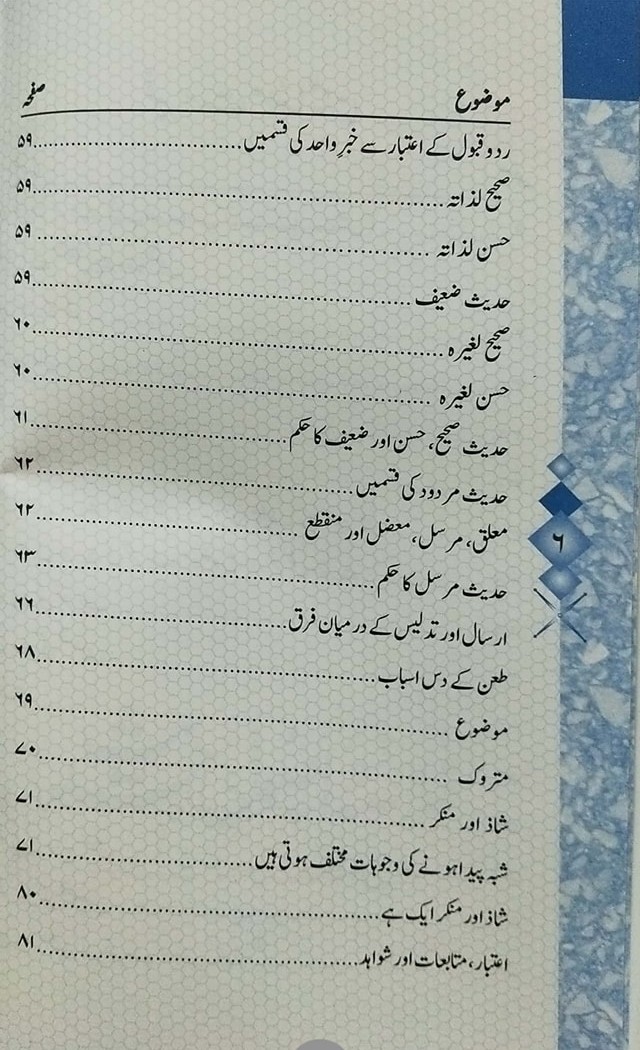 موضوع صفحہ
رد و قبول کے اعتبار سے خبرِ واحد کی قسمیں ۵۹
صحیح لذاتہ ۵۹
حسن لذاتہ ۵۹
حدیث ضعیف ۵۹
صحیح لغیرہ ۶۰
حسن لغیرہ ۶۰
حدیث صحیح، حسن اور ضعیف کا حکم ۶۱
حدیث مردود کی قسمیں ۶۲
معلق، مرسل، معضل اور منقطع ۶۲
حدیث مرسل کا حکم ۶۳
ارسال اور تدلیس کے درمیان فرق ۶۶
طعن کے دس اسباب ۶۸
موضوع ۶۹
متروک ۷۰
شاذ اور منکر ۷۱
شبہ پیدا ہونے کی وجوہات مختلف ہوتی ہیں ۷۱
شاذ اور منکر ایک ہے ۸۰
اعتبار، متابعات اور شواہد ۸۱
۶